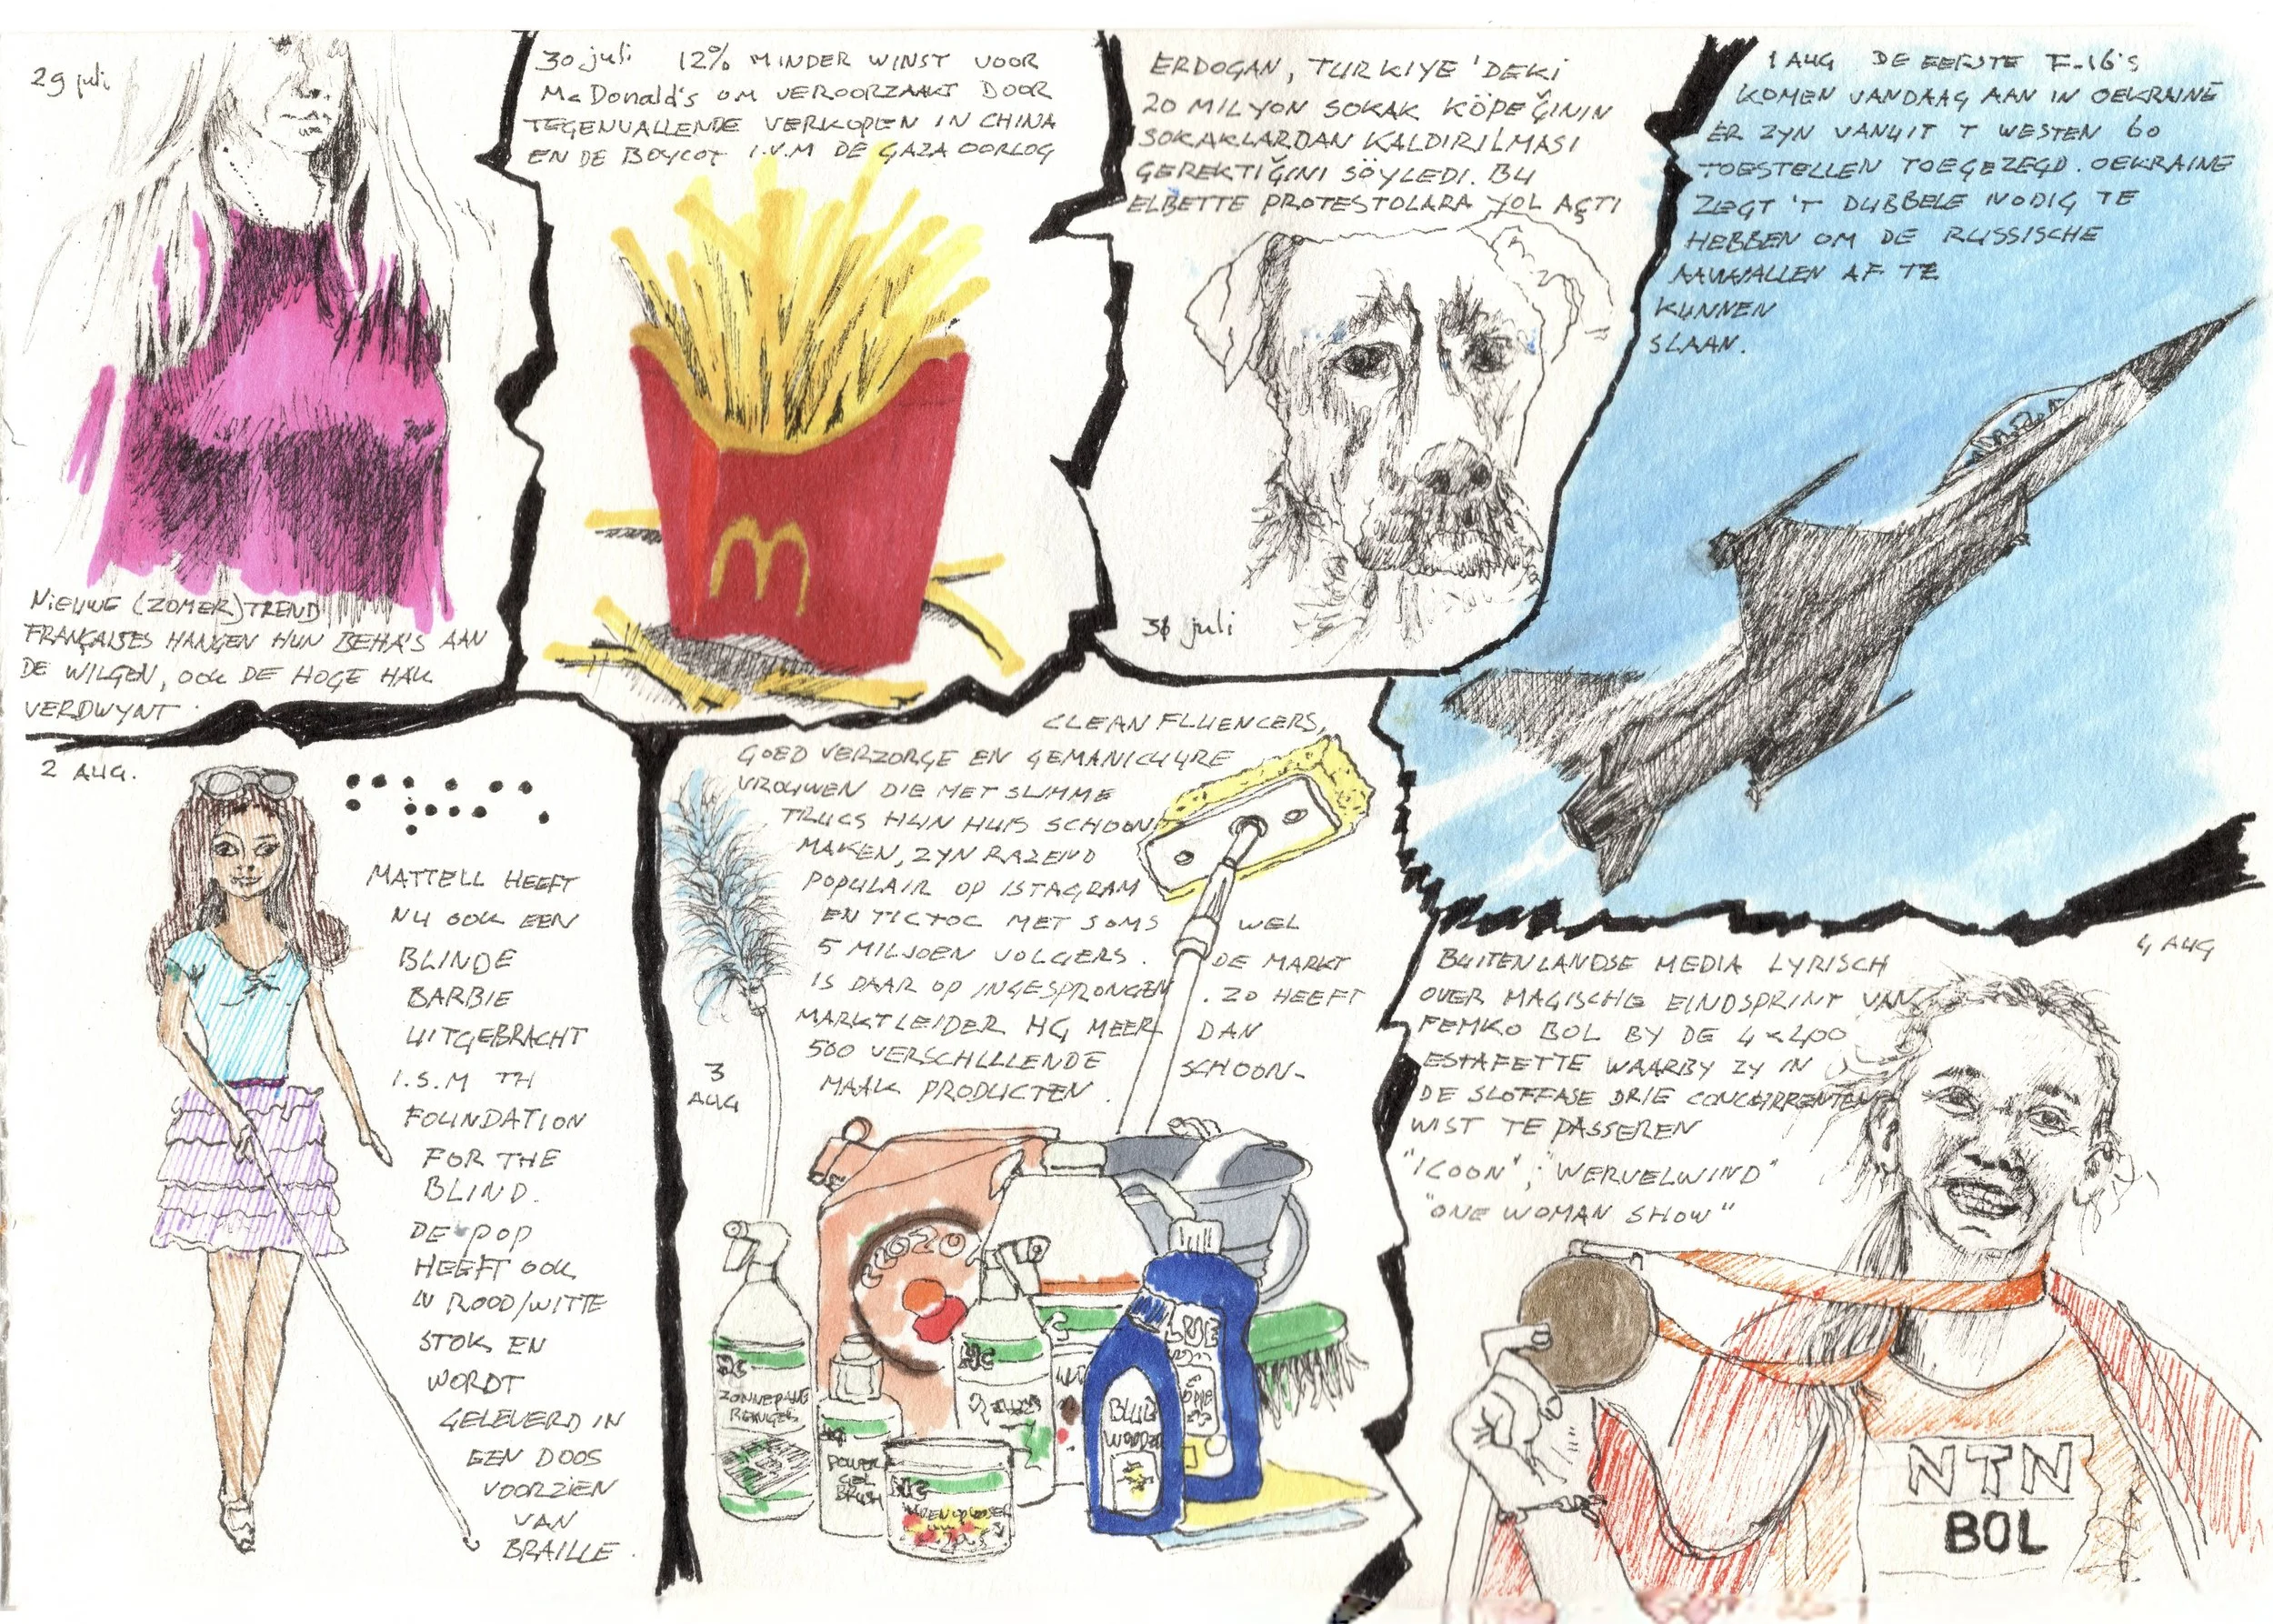 29 juli
NIEUWE (ZOMER)TREND
FRANÇAISES HANGEN HUN BEHA'S AAN
DE WILGEN, OOK DE HOGE HAK
VERDWYNT
30 juli 12% MINDER WINST VOOR
McDonald's OM VEROORZAAKT DOOR
TEGENVALLENDE VERKOPEN IN CHINA
EN DE BOYCOT I.V.M DE GAZA OORLOG
M
ERDOGAN, TURKIYE'DEKI
20 MILYON SOKAK KÖPEĞININ
SOKAKLARDAN KALDIRILMASI
GEREKTIĞINI SÖYLEDI. BU
ELBETTE PROTESTOLARA YOL AÇTI
juli
1 AUG DE EERSTE F-16'S
KOMEN VANDAAG AAN IN OEKRAINË
ER ZYN VANUIT T WESTEN 60
TOESTELLEN TOEGEZEGD. OEKRAINE
ZEGT 'T DUBBELE NODIG TE
HEBBEN OM DE RUSSISCHE
AANVALLEN AF TE
KUNNEN
SLAAN.
2 AUG.
MATTELL HEEFT
NU OOK EEN
BLINDE
BARBIE
UITGEBRACHT
I.S.M TH
FOUNDATION
FOR THE
BLIND.
DE POP
HEEFT OOK
'N ROOD/WITTE
STOK EN
WORDT
GELEVERD IN
EEN DOOS
VOORZIEN
VAN
BRAILLE.
CLEANFLUENCERS,
GOED VERZORGE EN GEMANICUURE
VROUWEN DIE MET SLIMME
TRUCS HUN HUIS SCHOON
MAKEN, ZYN RAZEND
POPULAIR OP ISTAGRAM
EN TICTOC MET SOMS WEL
5 MILJOEN VOLGERS. DE MARKT
IS DAAR OP INGESPRONGEN. ZO HEEFT
MARKTLEIDER HG MEER DAN
500 VERSCHILLENDE SCHOON-
MAAK PRODUCTEN.
3
AUG
HG
ZONNEPANE
REINIGER
HG
POWER
GEL
BRUSH
HG
HG
BLUE
WONDER
4 AUG
BUITENLANDSE MEDIA LYRISCH
OVER MAGISCHE EINDSPRINT VAN
FEMKO BOL BY DE 4x400
ESTAFETTE WAARBY ZY IN
DE SLOTFASE DRIE CONCURRENTEN
WIST TE PASSEREN
"ICOON", "WERVELWIND"
"ONE WOMAN SHOW"
NTN
BOL